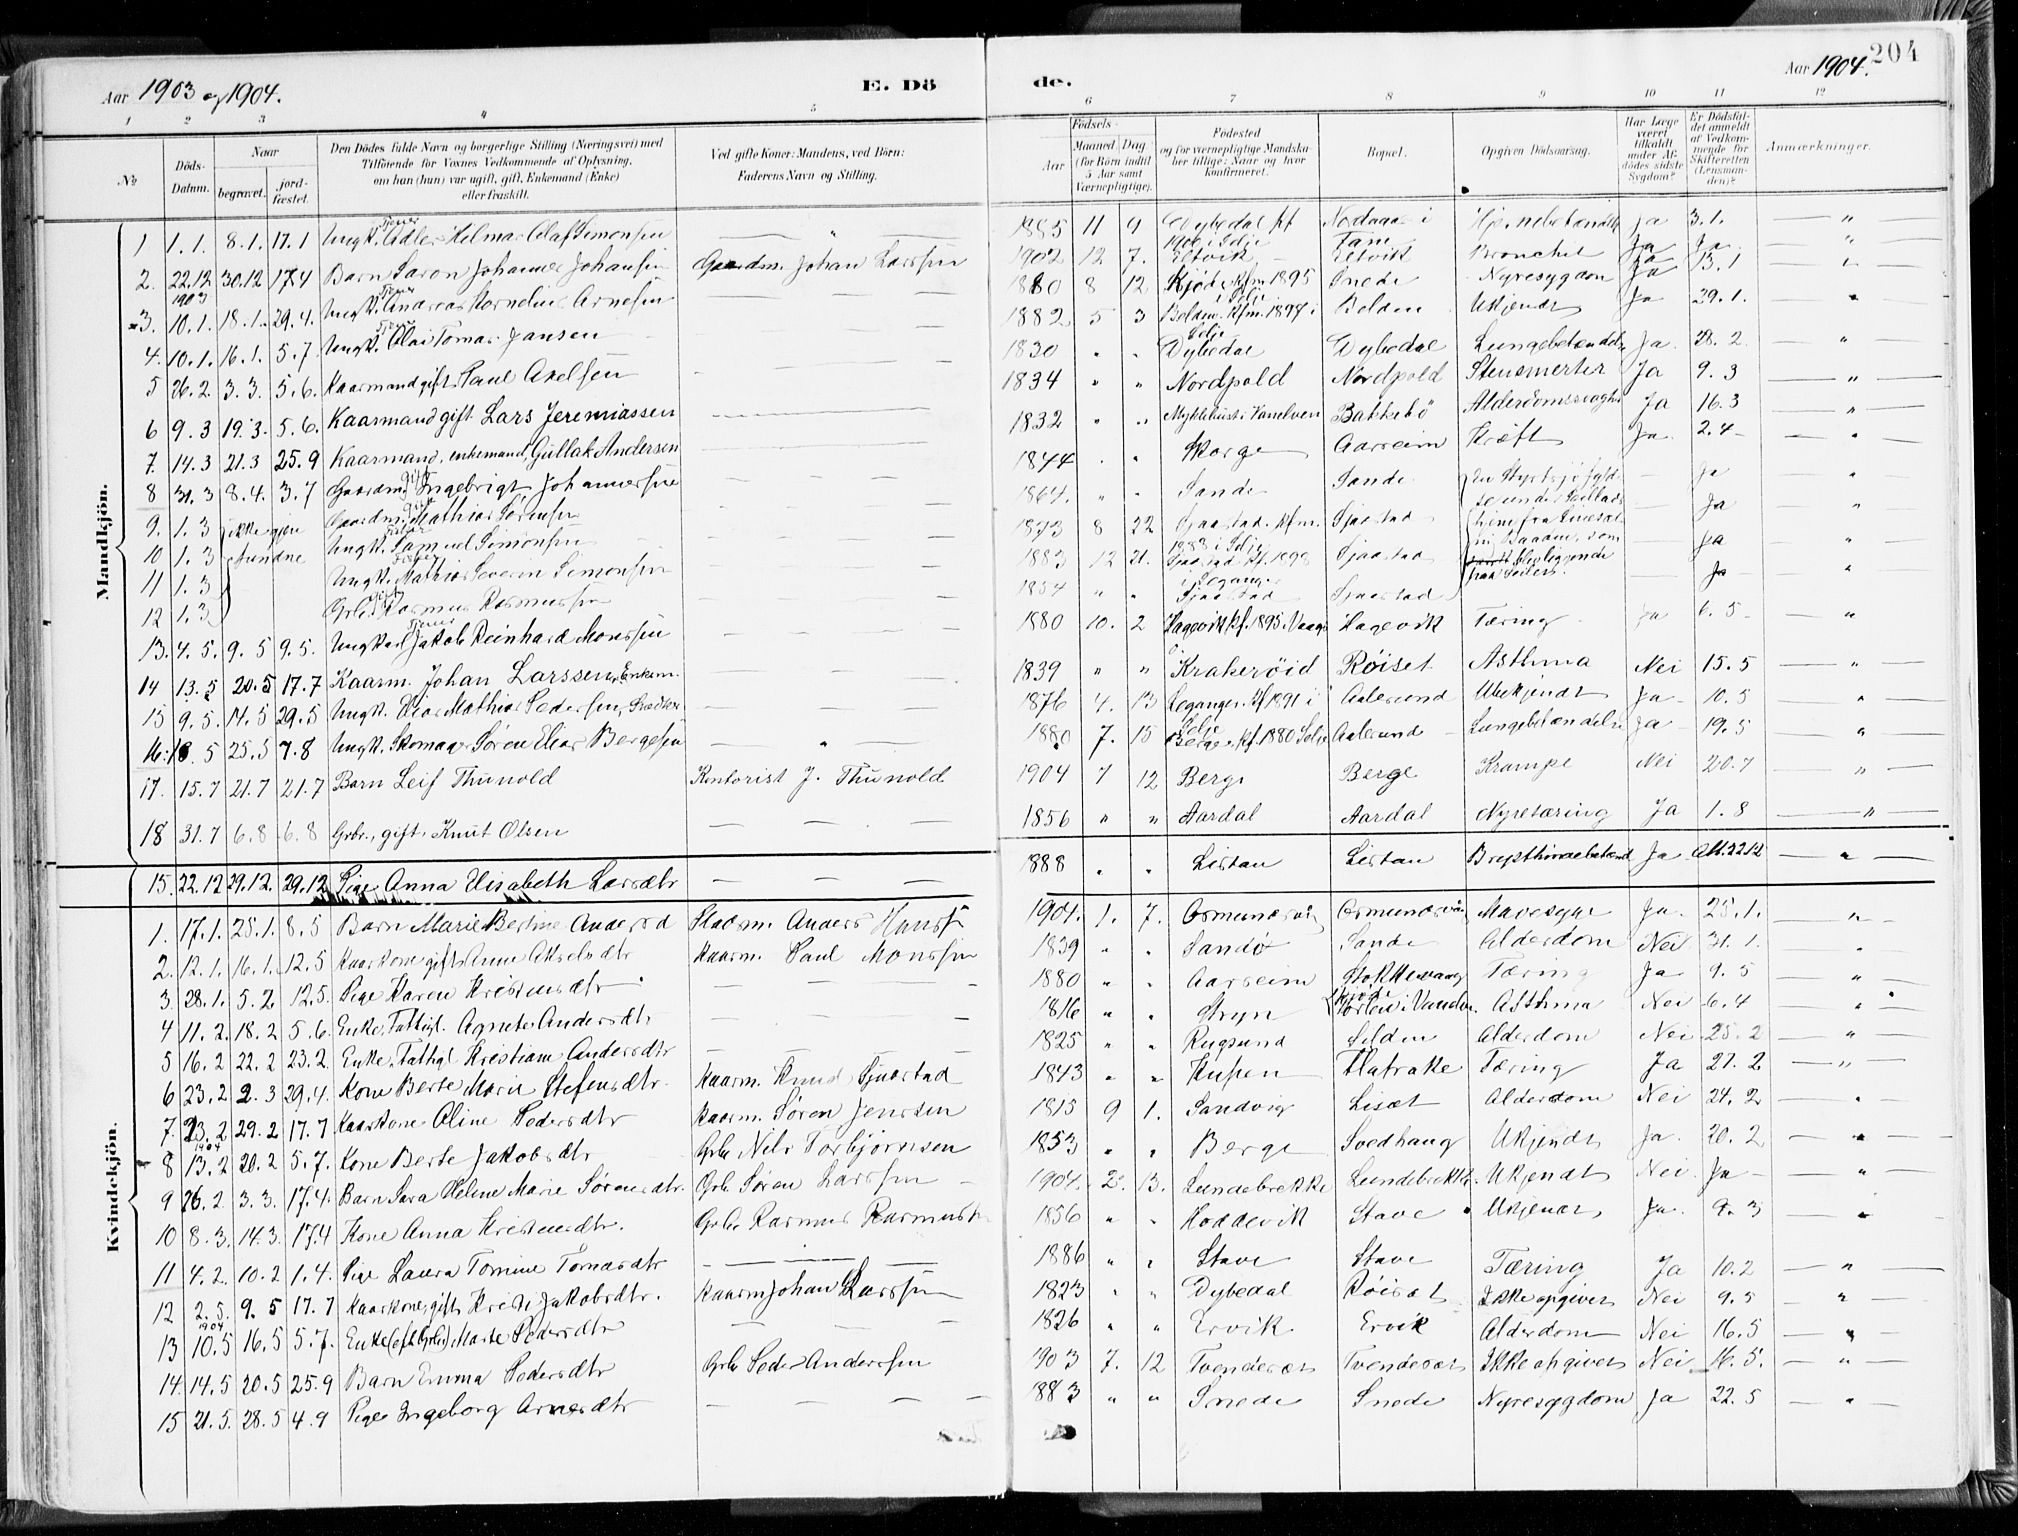 Aar 1903 og 1904. E. Dö de. Aar 1904. 204
1 2 3 4 5 6 7 8 9 10 11 12
№ Döds-Datum. Naar begravet. jord-fæstet. Den Dödes fulde Navn og borgerlige Stilling (Næringsvei) med Tilföiende för Voxnes Vedkommende af Oplysning, om han (hun) var ugift, gift, Enkemand (Enke) eller fraskilt. Ved gifte Koner: Mandens, ved Börn: Faderens Navn og Stilling. Födsels- Aar Maaned Dag (for Börn indtil 5 Aar samt Værnepligtige). Födested og for værnepligtige Mandskaber tillige: Naar og hvor konfirmeret. Bopæl. Opgiven Dödsaarsag. Har Læge været tilkaldt under Afdödes sidste Sygdom? Er Dödsfaldet anmeldt af Vedkommende for Skifteretten (Lensmanden)? Anmærkninger.
Mandkjön.
1 1.1. 8.1. 17.1 Ungk. Adler Hilmar Olaf Simonsen 1885 11 9 Dybedal kf 1900 i Selje Ja 3.1.
2. 22.12 1903 30.12 17.4 Barn Saron Johannes Johansen Gaardm. Johan Larssen 1902 12 7. Eltvik Eltvik Bronchit Ja Ja
3. 10.1. 18.1. 29.4. Ungk. Andreas Kornelius Arnesen 1880 8 12 Kfm 1895 Snede Nyresygdom Ja 13.1
4. 10.1. 16.1. 5.7 Ungk. Olai Tomas Jansen 1882 5 3 Belden. Kfm. 1897 i Selje Belden Ukjendt Ja 29.1.
5 26.2. 3.3. 5.6. Kaarmand gift Paul Axelsen 1830 Dybedal Dybedal Lungebetændelse Ja 28.2
6 9.3 19.3. 5.6. Kaarmand gift Lars Jeremiassen 1834 Nordpold Nordpold Stensmerter Ja 9.3
7. 14.3 21.3 25.9 Kaarmand, enkemand, Gullak Andersen 1832 Myklebust i Vanelven Bakkebö Alderdomssvagh. Ja 16.3
8 31.3 8.4. 3.7 Gaardm. gift Ingebrigt Johannessen 1844 Morge Aarseim Kræft Ja. 2.4
9. 1.3 ikke gjen- Gaardm. gift Mathias Sørensen 1864. Sande Sande Ja
10 1.3 fundne Ungk. Samuel Simonsen 1873 8 22 Sjaastad. kfm. 1888 i Selje Sjaastad Ja
11 1.3 Ungk. Mathias Severin Simonsen 1883 12 21. Sjaastad kf. 1898 Sjaastad Ja
12 1.3 Grbr. gift Rasmus Rasmussen 1854 Sjaastad Sjaastad Ja
13. 4.5. 9.5 9.5. Ungkarl Jakob Reinhard Monssen 1880 10. 2 Hagevik kf. 1895 Hagevik Tæring Ja 6.5
14 13.5 20.5 17.7 Kaarm. Johan Larssen, Enkem. 1839 Krakeröid Röiset Asthma Nei 15.5
15 9.5. 14.5 29.5 Ungk. Elias Mathias Pedersen, Snedker 1876 4. 13 Leganger. kf 1891 i Selje Aalesund Ubekjendt Ja 10.5
16. 18.5 25.5 7.8 Ungk. Skomager Søren Elias Bergesen 1880 7. 15 Berge kf. 1880 Selje Aalesund Lungebetændelse Ja 19.5
17. 15.7 21.7 21.7 Barn Leif Thunold Kontorist J. Thunold 1904 7 12 Berge Berge Krampe Nei 20.7
18 31.7 6.8 6.8 Grbr., gift, Knut Olsen 1856 Aardal Aardal Nyretæring Ja 1.8
15. 22.12 29.12. 29.12 Pige Anna Elisabeth Larsdtr 1888 Listau Listau Brysthindebetænd. Ja Att. 22.12
Kvindekjön.
1. 17.1. 25.1. 8.5 Barn Marie Bertine Andersd Anders Hanss 1904. 1. 7. Ormundsvig Ormundsvig Mavesyge Ja. 25.1.
2. 12.1. 16.1. 12.5 Kaarkone gift Anne Akselsdtr Kaarm. Paul Monssen 1839 Sandö Sande Alderdom Nei 31.1.
3. 28.1. 5.2. 12.5. Pige Karen Kristensdtr 1880 Aarseim Stokkevaag Tæring Ja 9.5
4 11.2. 18.2 5.6. Enke, Fattigl. Agnete Andersdtr 1816 Stryn Asthma Nei 6.4
5 16.2 22.2 23.2. Enke, Fattigl Kristiane Andersdtr 1825 Rugsund Selden Alderdom Nei 25.2
6 23.2 2.3 29.4. Kone Berte Marie Stefensdtr. Kaarm. Knud Sjaastad 1843 Hupen Flatrake Tæring Ja 27.2
7. 23.2 29.2 17.7 Kaarkone Oline Pedersdtr Kaarm. Søren Jenssen 1815 9 1. Sandvig Liset Alderdom Nei 24.2
8 1904 13.2 20.2 5.7. Kone Berte Jakobsdtr Grbr Nils Torbjørnsen 1853 Berge Svedhaug Ukjendt Ja. 20.2
9 26.2. 3.3. 17.4. Barn Sara Heline Marie Sørensdtr. Grbr. Søren Larssen 1904. 2. 13. Lundebrekke Lundebrekke Ukjendt Nei Ja
10 8.3. 14.3. 17.4 Kone Anna Kristensdtr. Grbr Rasmus Rasmussen 1856 Hoddevik Stave Ukjendt Ja. 9.3
11 4.2. 10.2 1.4. Pige Laura Tomine Tomasdtr 1886 Stave Stave Tæring Ja 10.2
12 2.5. 9.5 17.7 Kaarkone, gift Kristi Jakobsdtr. Kaarm Johan Larssen 1823 Dybedal Röiset Ikke opgivet Nei 9.5
13 1904 10.5 16.5 5.7. Enke (eft. Grbr) Marte Pedersdtr 1826 Ervik Ervik Alderdom Nei 16.5
14. 14.5 20.5 25.9 Barn Emma Pedersdtr Grbr Peder Anderssen 1903 7. 12 Tvendesæt Tvendesæt Ikke opgivet Nei 16.5.
15 21.5. 28.5 4.9 Pige Ingeborg Arnesdtr 1883 Snede Snede Nyresygdom Ja 22.5